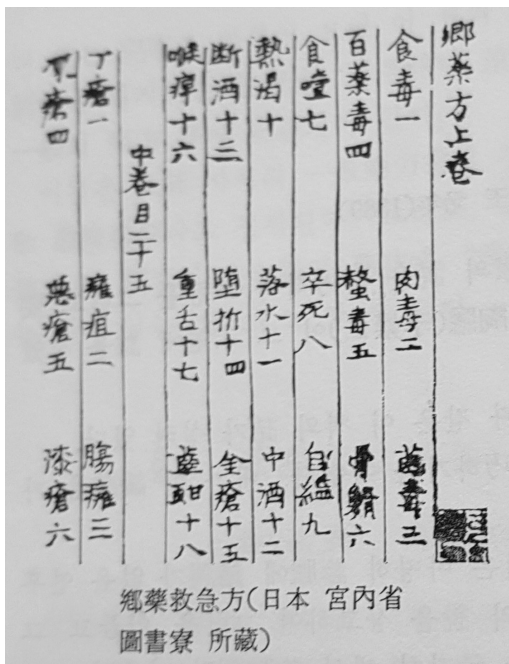 鄕藥方上卷
食毒一 肉毒二 菌毒三
百藥毒四 螫毒五 骨鯁六
食噎七 卒死八 自縊九
熱渴十 落水十一 中酒十二
断酒十三 墮折十四 金瘡十五
喉痺十六 重舌十七 十八
中卷目二十五
丁瘡一 癰疽二 腸癰三
瘡四 惡瘡五 漆瘡六
鄕藥救急方(日本 宮內省
圖書寮 所藏)